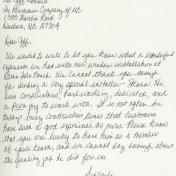 The Aluminum Company of NC
Durham, NC 27704
Dear Jeff,
We wanted to let you know what a wonderful
experience we had with our window installation at
We cannot thank you enough
for sending a very special installer
He was conscientious, hardworking, dedicated, and
a fun guy to work with. It is not often in
today's busy construction times that customers
have such a good experience as ours. Please know
that you are lucky to have him as a member
of your team, and we cannot say enough about
the amazing job he did for us.
Sincerely,